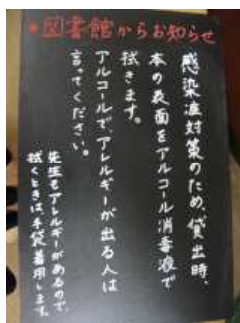 ★図書館からお知らせ
感染症対策のため、貸出時、
本の表面をアルコール消毒液で
拭きます。
アルコールで、アレルギーが出る人は
言ってください。
先生もアレルギーがあるので、
拭くときは手袋着用します。